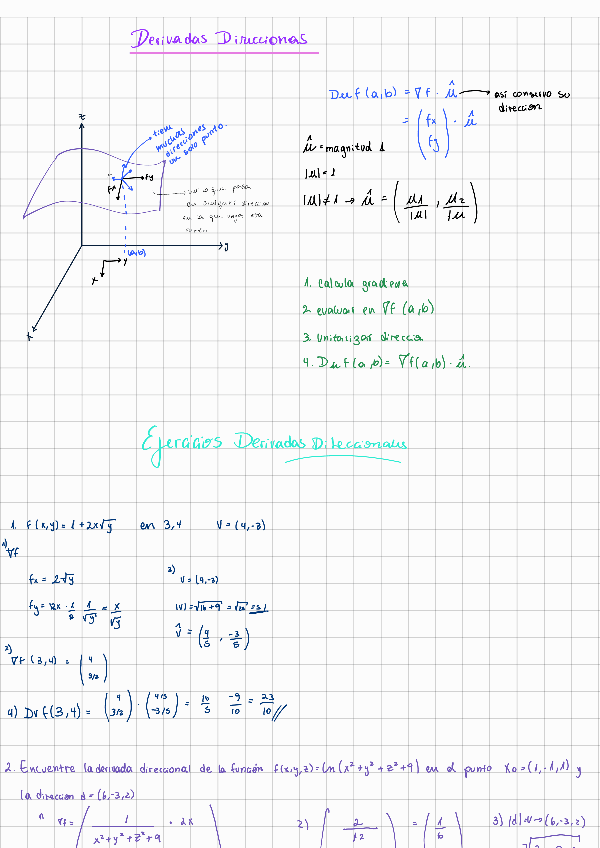 Derivadas Direccionales
Du f(a,b) = ∇f · û → así conservo su
dirección
= (fx
fy) · û
z
tiene
muchas
direcciones
en un solo punto.
û = magnitud 1
|u| = 1
|u| ≠ 1 → û = (u1/|u| , u2/|u|)
fy
fx
lo que pasa
en cualquier dirección
en la que
(a,b)
y
x
y
x
1. calcula gradiente
2. evaluar en ∇f (a,b)
3. Unitarizar dirección
4. Du f(a,b) = ∇f(a,b) · û.
Ejercicios Derivadas Direccionales
1. f(x,y) = 1 + 2x√y en 3,4 V = (4,-3)
1)
∇f
fx = 2√y
3)
V = (4,-3)
fy = 2x · 1/2 · 1/√y = x/√y
|V| = √16+9 = √25 = 5
V̂ = (4/5 , -3/5)
2)
∇f (3,4) = (4
3/2)
4) Dv f(3,4) = (4
3/2) · (4/5
-3/5) = 16/5 -9/10 = 23/10 //
2. Encuentre la derivada direccional de la función f(x,y,z) = ln(x²+y²+z²+9) en el punto X₀ = (1,-1,1) y
la dirección d = (6,-3,2)
1) ∇f = ( 1/x²+y²+z²+9 · 2x
2) ( 2/12 ) = ( 1/6 )
3) |d| = V → (6,-3,2)